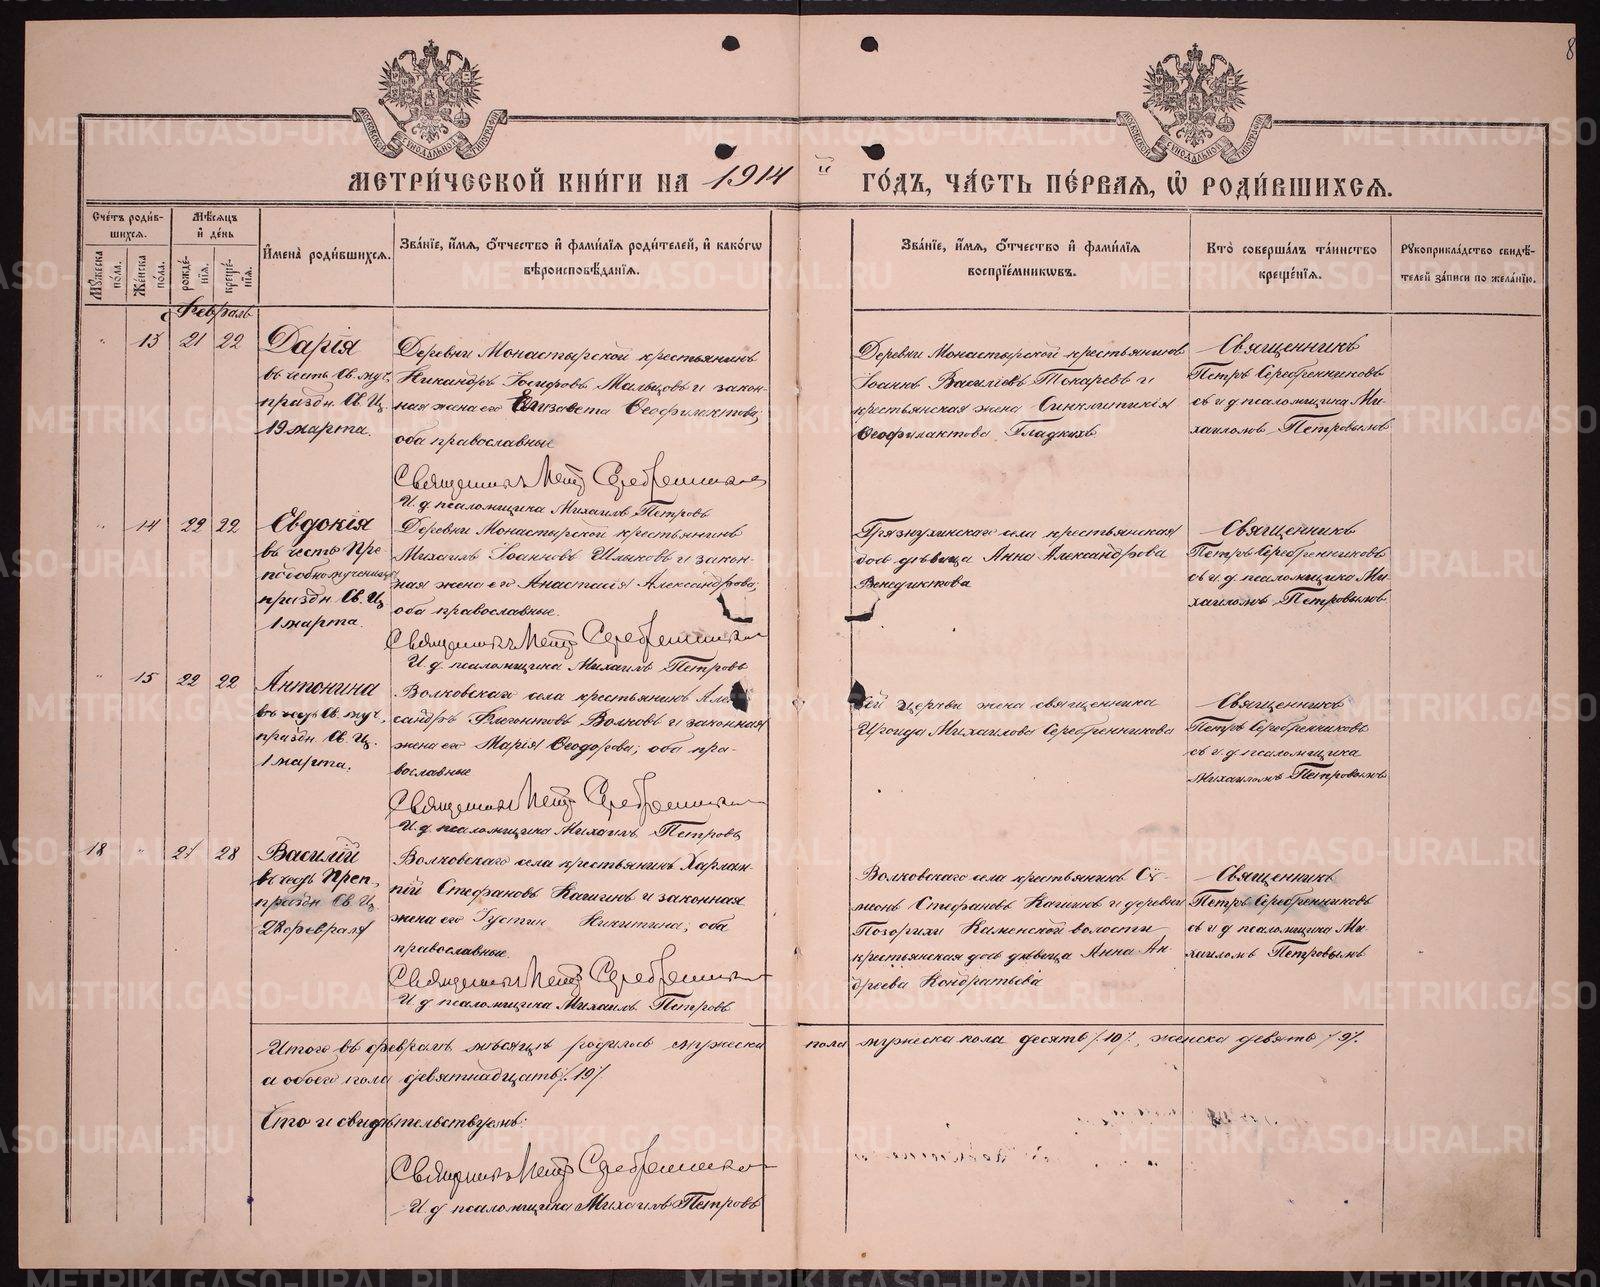 8
МЕТРИ́ЧЕСКОЙ КНИ́ГИ НА 1914 й ГО́ДЪ, ЧА́СТЬ ПЕ́РВАѦ, Ѽ РОДИ́ВШИХСѦ.
Сче́тъ роди́в-
шихсѧ.
Мꙋ́жеска по́ла.
Же́нска по́ла.
Мѣ́сѧцъ
и҆ де́нь
рожде́-
нїѧ.
креще́-
нїѧ.
И҆мена̀ роди́вшихсѧ.
Зва́нїе, и҆́мѧ, ѻ҆́тчество и҆ фами́лїѧ роди́телей, и҆ како́гѡ
вѣроисповѣ́данїѧ.
Зва́нїе, и҆́мѧ, ѻ҆́тчество и҆ фами́лїѧ
воспрїе́мникѡвъ.
Кто̀ соверша́лъ та́инство
креще́нїѧ.
Рꙋкоприкла́дство свидѣ́-
телей за́писи по жела́нїю.
Февраль
13 21 22
Дарія
въ честь Св. муч.
праздн. Св. Ц.
19 марта.
Деревни Монастырской крестьянинъ
Никандръ Іосифовъ Мальцовъ и закон-
ная жена его Елизавета Ѳеофилактова;
оба православные
Священникъ Петръ Серебренниковъ
И. д. псаломщика Михаилъ Петровъ
Деревни Монастырской крестьянинъ
Іоаннъ Василіевъ Токаревъ и
крестьянская жена Синклитикія
Ѳеофилактова Гладкихъ
Священникъ
Петръ Серебренниковъ
съ и д псаломщика Ми-
хаиломъ Петровымъ
14 22 22
Евдокія
въ честь Пре
подобномученицы
праздн. Св. Ц
1 марта.
Деревни Монастырской крестьянинъ
Михаилъ Іоанновъ и закон-
ная жена его Анастасія Александрова;
оба православные.
Священникъ Петръ Серебренниковъ
И. д. псаломщика Михаилъ Петровъ
Грязнухинскаго села крестьянская
дочь дѣвица Анна Александрова
Венедиктова
Священникъ
Петръ Серебренниковъ
съ и. д. псаломщика Ми-
хаиломъ Петровымъ
15 22 22
Антонина
въ честь Св. муч.
праздн. Св. Ц.
1 марта.
Волковскаго села крестьянинъ Алек
сандръ Флегонтовъ Волковъ и законная
жена его Марія Ѳеодорова; оба пра-
вославные
Священникъ Петръ Серебренниковъ
И. д. псаломщика Михаилъ Петровъ
сей церкви жена священника
Ираида Михаилова Серебренникова
Священникъ
Петръ Серебренниковъ
съ и. д псаломщика
Михаиломъ Петровымъ
18 27 28
Василій
въ честь Преп.
праздн Св. Ц
28 февраля
Волковскаго села крестьянинъ Харлам-
пій Стефановъ Кашинъ и законная
жена его Іустин Никитина; оба
православные.
Священникъ Петръ Серебренниковъ
И. д. псаломщика Михаилъ Петровъ
Волковскаго села крестьянинъ Сѵ-
меонъ Стефановъ Кашинъ и деревни
Позорихи Каменской волости
крестьянская дочь дѣвица Анна Ан-
дреева Кондратьева
Священникъ
Петръ Серебренниковъ
съ и д псаломщика Ми-
хаиломъ Петровымъ
Итого въ февралѣ мѣсяцѣ родилось мужеска пола мужеска пола десять /10/, женска девять /9/.
а обоего пола девятнадцать /19/
Что и свидѣтельствуемъ:
Священникъ Петръ Серебренниковъ
И. д псаломщика Михаилъ Петровъ
METRIKI.GASO-URAL.RU